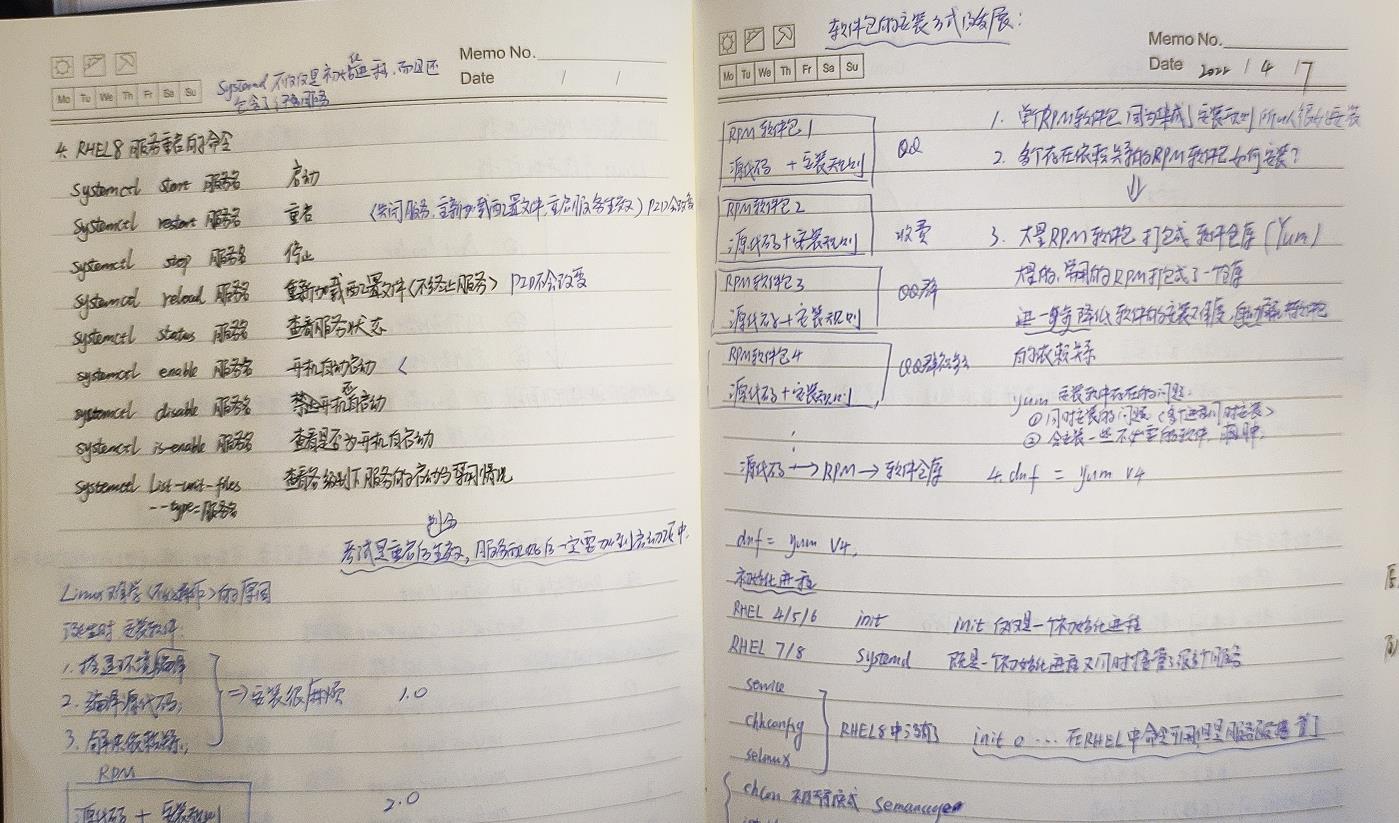 Memo No.
Date / /
Mo Tu We Th Fr Sa Su
Systemd 不仅仅是初始化进程,而且还
包含了很多服务
4. RHEL8 服务重启的命令
Systemctl start 服务名 启动
Systemctl restart 服务名 重启 (关闭服务,重新加载配置文件,重启服务生效) PID会改变
Systemctl stop 服务名 停止
Systemctl reload 服务名 重新加载配置文件(不终止服务) PID不会改变
Systemctl status 服务名 查看服务状态
systemctl enable 服务名 开机自动启动
systemctl disable 服务名 禁止开机自启动
systemctl is-enable 服务名 查看是否为开机自启动
systemctl List-unit-files 查看各级别下服务的启动与禁用情况
--type=服务名
考试是重启后生效,服务配好后一定要加到启动项中.
Linux难学()的原因
诞生时 安装软件:
1. 搭建环境
2. 编译源代码; => 安装很麻烦 1.0
3. 解决依赖关系;
RPM
源代码 + 安装规则 2.0
软件包的安装方式的发展:
Memo No.
Date 2022 / 4 / 7
Mo Tu We Th Fr Sa Su
RPM 软件包 1
源代码 + 安装规则 QQ
RPM软件包 2
源代码 + 安装规则 收费
RPM软件包 3
源代码 + 安装规则 QQ群
RPM软件包 4
源代码 + 安装规则 QQ群
源代码 → RPM → 软件仓库
1. 单个RPM软件包 因为集成了安装规则 所以很好安装
2. 多个存在依赖关系的RPM软件包如何安装?
⇓
3. 大量RPM软件包 打包成 软件仓库 (Yum)
大量的,常用的RPM打包成了一个仓库
进一步降低软件的安装难度,自动解决软件包
的依赖关系
yum 安装软件存在的问题.
① 同时安装的问题 (多个进程同时安装)
② 会安装一些不必要的软件,
4. dnf = yum v4
dnf = yum v4,
初始化进程
RHEL 4/5/6 init init 仅仅是一个初始化进程
RHEL 7/8 Systemd 既是一个初始化进程 又同时接管了很多个服务
service
chkconfig RHEL8中没有了 init 0 ... 在RHEL中命令可用但是服务被接管了
selinux
chcon semanage